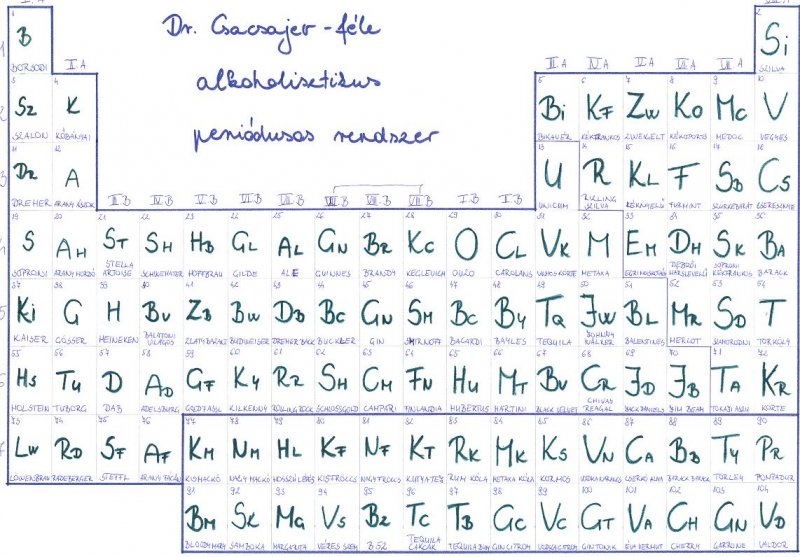 Dr. Csacsajer-féle
alkoholisztikus
periódusos rendszer
I. A
II. A
III. A
IV. A
V. A
VI. A
VII. A
III. B
IV. B
V. B
VI. B
VII. B
VIII. B
VIII. B
VIII. B
I. B
1 B BORSODI
2 Si SZILVA
3 Sz SZALON
4 K KŐBÁNYAI
5 Bi BIKAVÉR
6 Kf KÉKFRANKOS
7 Zw ZWEIGELT
8 Ko KÉKOPORTÓ
9 Mc MEDOC
10 V VEGYES
11 Dr DREHER
12 A ARANY ÁSZOK
13 U UNICUM
14 R RIZLING SZILVA
15 Kl KÉKNYELŰ
16 F FURMINT
17 Sb SZÜRKEBARÁT
18 Cs CSERESZNYE
19 S SOPRONI
20 Ah ARANY HORDÓ
21 St STELLA ARTOISE
22 Sh
23 Hb HOFFBRAU
24 Gl GILDE
25 Al ALE
26 Gn GUINNES
27 Br BRANDY
28 Kc KEGLEVICH
29 O OUZO
30 Cl CAROLANS
31 Vk VILMOSKÖRTE
32 M METAXA
33 Em EGRI MUSKOTÁLY
34 Dh DEBRŐI HÁRSLEVELŰ
35 Sk SOPRONI KÉKFRANKOS
36 Ba BARACK
37 Ki KAISER
38 G GÖSSER
39 H HEINEKEN
40 Bv BALATONI VILÁGOS
41 Zb ZLATY BAZANT
42 Bw BUDWEISER
43 Db DREHER BACK
44 Bc BUCKLER
45 Gn GIN
46 Sm SMIRNOFF
47 Bc BACARDI
48 By BAYLES
49 Tq TEQUILA
50 Jw JOHNNY WALKER
51 Bl BALENTINES
52 Mr MERLOT
53 SD SZAMORODNI
54 T TÖRKÖLY
55 Hs HOLSTEIN
56 Tu TUBORG
57 D DAB
58 Ad ADELSBURG
59 Gf
60 Ky KILKENNY
61 Rz ROLLING ROCK
62 Sh SCHLOSSGOLD
63 Cm CAMPARI
64 Fn FINLANDIA
65 Hu HUBERTUS
66 Mt MARTINI
67 Bv BLACK VELVET
68 Cr CHIVAS REAGAL
69 JD JACK DANIELS
70 Jb JIM BEAM
71 Ta TOKAJI ASZÚ
72 Kr KÖRTE
73 Lw LÖWENBRAU
74 Rd RADEBERGER
75 Sf STEFFL
76 Af ARANY FÁCÁN
77 Km KISMACKÓ
78 Nm NAGY MACKÓ
79 Hl HOSSZÚLÉPÉS
80 Kf KISFRÖCCS
81 Nf NAGYFRÖCCS
82 Kt KUTYATEJ
83 Rk RUM KÓLA
84 Mk METAXA KÓLA
85 Ks KORMOS
86 Vn VODKA NARANCS
87 Ca CSERKÓ ALMA
88 Bb BARACK BARACK
89 Ty TÖRLEY
90 Pr POMPADUR
91 Bm BLOODY MARY
92 Sk SAMBOKA
93 Mg MARGARITA
94 Vs VÉRES SZEM
95 Bz B 52
96 Tc TEQUILA CAKCAK
97 Tb TEQUILA BUM
98 Gc GIN CITROM
99 Vc VODKA CITROM
100 Gt GIN TONIK
101 Va ÉVA VERMUT
102 Ch CHERRY
103 Gn GARRONE
104 Vd VALDOR